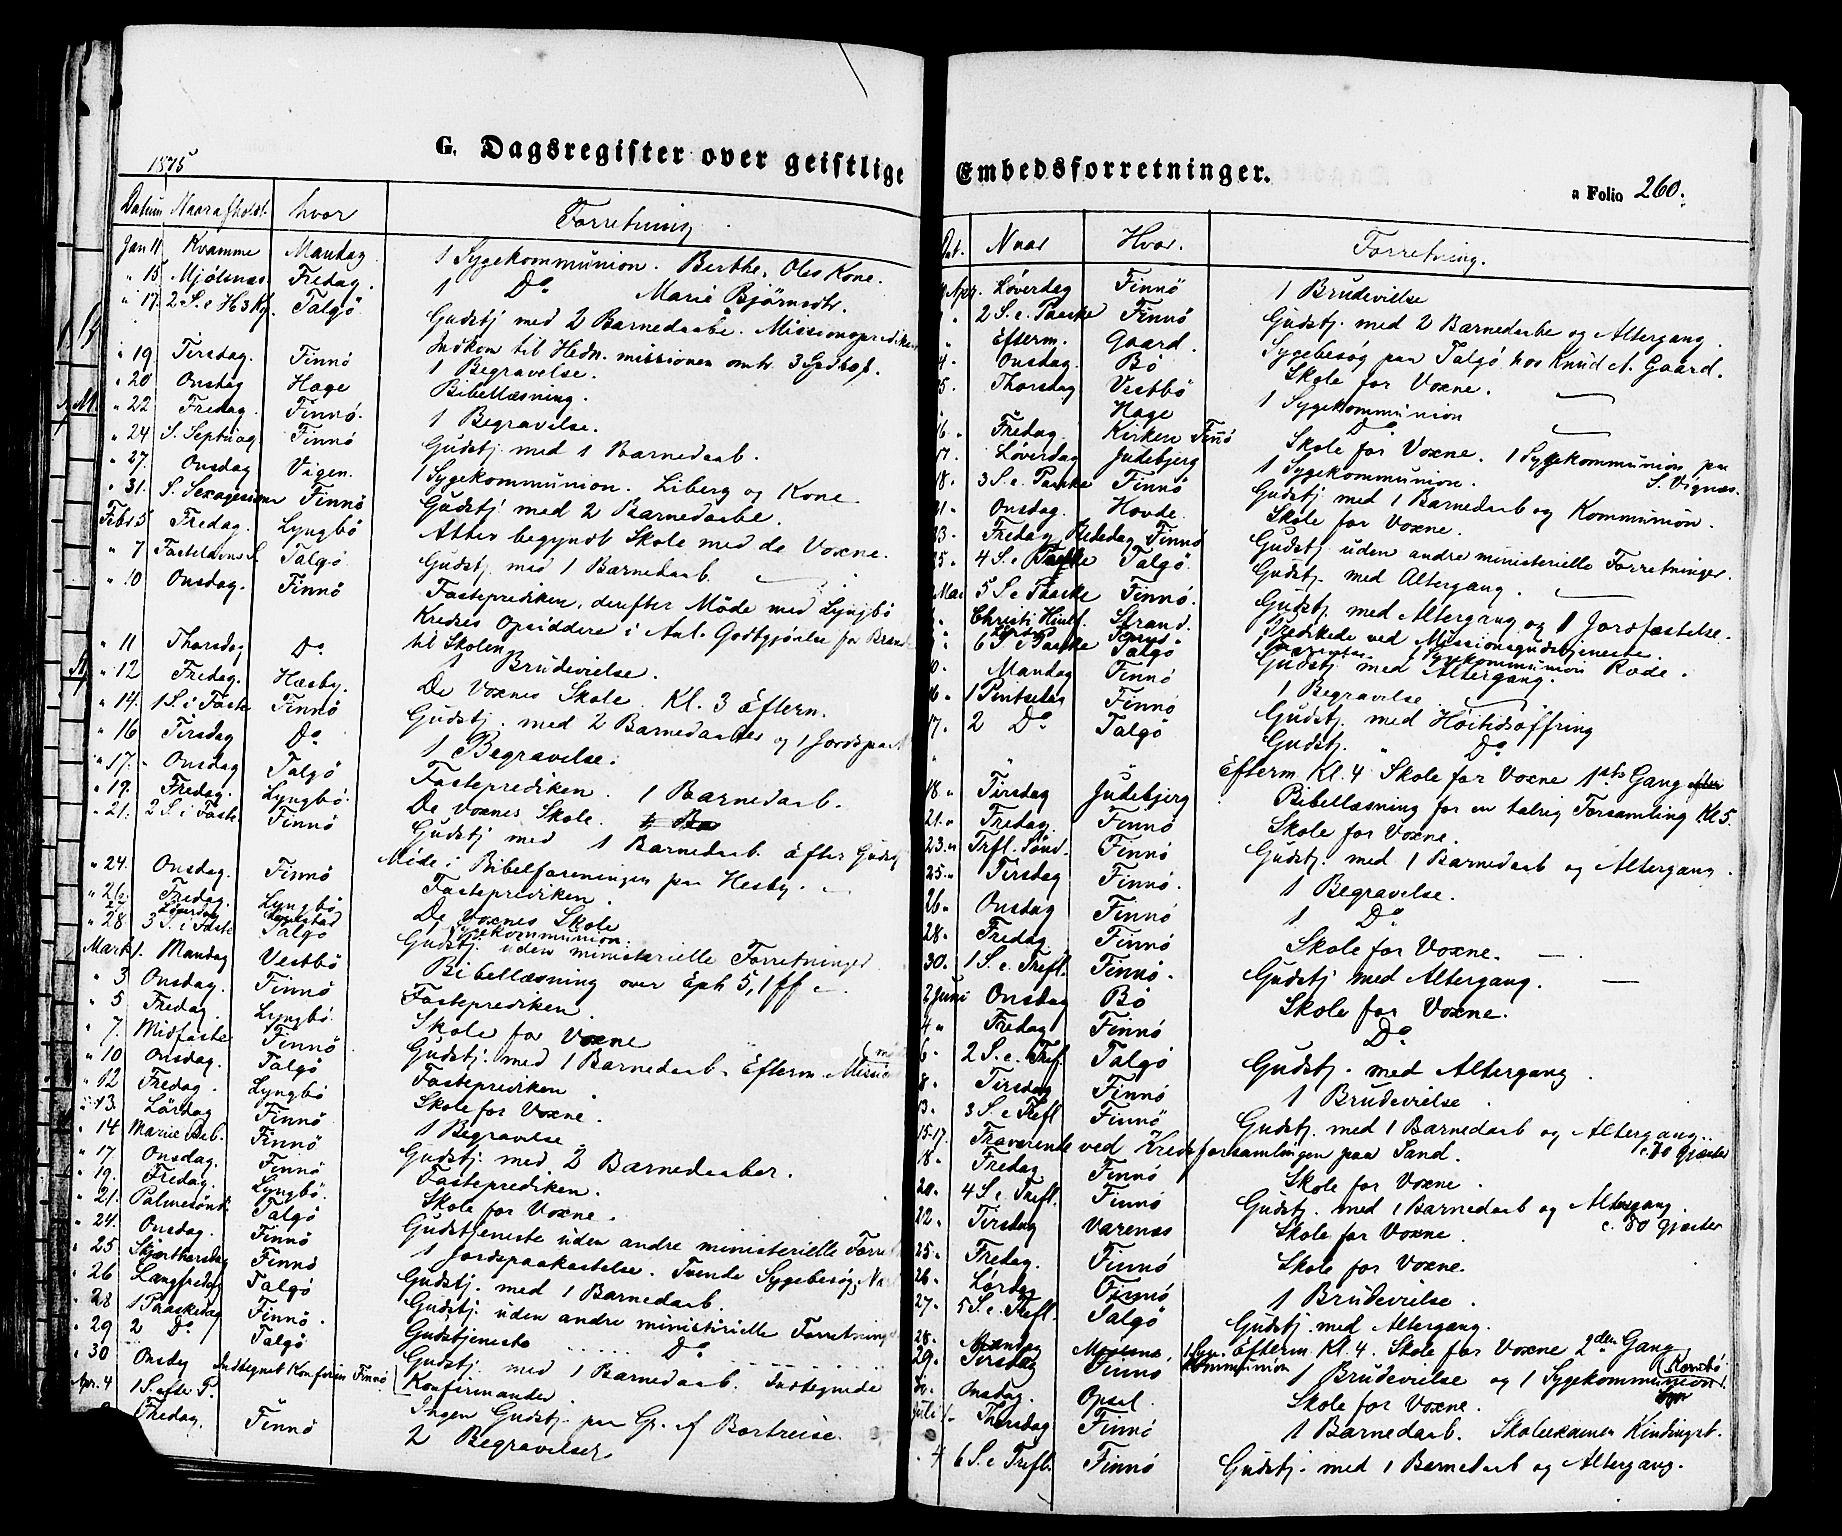 1875
G. Dagsregister over geistlige Embedsforretninger.
a Folio 260.
Datum Naar afholdt. hvor Forretning
Jan 11 Kvamme Mandag 1 Sygekommunion. Berthe, Oles Kone.
" 15 Mjölsnæs Fredag. 1 Do Marie Björnsdtr.
" 17. 2 S. e. H 3 Kg. Talgö Gudstj med 2 Barnedaabe. Missionspredik
Indkom til Hedn. missionen omtr 3
" 19 Tirsdag. Finnö 1 Begravelse.
" 20 Onsdag Hage Bibellæsning.
" 22 Fredag. Finnö. 1 Begravelse.
" 24 S. Septuag Finnö Gudstj med 1 Barnedaab.
" 27. Onsdag Vigen. 1 Sygekommunion. Liberg og Kone.
" 31. S. Sexagesima Finnö Gudstj med 2 Barnedaabe.
Febr 5 Fredag. Lyngbö Atter begyndt Skole med de Voxne.
" 7 Fastelavns S. Talgö Gudstj. med 1 Barnedaab.
" 10 Onsdag. Finnö Fasteprediken, derefter Möde med Lyngbö
Kredses Opsiddere i Anl. Godtgjörelse for Brænde
til Skolen
" 11 Thorsdag Do 1 Brudevielse.
" 12 Fredag. Hæsby. De Voxnes Skole. Kl. 3 Eftern.
" 14. 1 S. i Faste Finnö Gudstj. med 2 Barnedaaber og 1 Jordspaak
" 16 Tirsdag Do 1 Begravelse.
" 17. Onsdag Talgö Fasteprediken. 1 Barnedaab.
" 19. Fredag. Lyngbö. De Voxnes Skole.
" 21. 2 S. i Faste Finnö Gudstj med 1 Barnedaab. Efter Gudstj
Möde i Bibelforeningen paa Hesby.
" 24. Onsdag. Finnö Fasteprediken.
" 26. Fredag. Lyngbö De Voxnes Skole
27 Löverdag Sygekommunion.
" 28 3 S. i Faste Talgö Gudstj. uden ministerielle Forretninger
Mart 1. Mandag Vestbö Bibellæsning over Eph 5, 1 ff
" 3 Onsdag. Finnö Fasteprediken.
" 5 Fredag. Lyngbö. Skole for Voxne
" 7. Midfaste Finnö Gudstj. med 1 Barnedaab. Efterm. Missi
" 10 Onsdag. Talgö Fasteprediken.
" 12 Fredag. Lyngbö Skole for Voxne.
" 13. Lördag Finnö 1 Begravelse.
" 14 Mariæ Beb. Finnö Gudstj med 2 Barnedaaber.
" 17 Onsdag. Finnö Fasteprediken.
" 19. Fredag. Lyngbö. Skole for Voxne.
" 21. Palmesönd. Talgö Gudstjeneste uden andre ministerielle Forre
" 24. Onsdag. Finnö 1 Jordspaakastelse. Tvende Sygebesög
" 25 Skjærthorsdag Finnö Gudstj. med 1 Barnedaab.
" 26 Langfredag Talgö Gudstj. uden andre ministerielle Forretning
" 28 1 Paaskedag Finnö. Gudstjeneste Do
" 29 2 Do Talgö Gudstj med 1 Barnedaab. Indtegnede
" 30 Onsdag Indtegnet Konfirm Finnö Konfirmander.
Apr. 4 1 S. efte P. Ingen Gudstj. paa Gr. af Bortreise.
Fredag. Finnö 2 Begravelser
Dat. Naar Hvor. Forretning.
Apr. Löverdag Finnö 1 Brudevielse
" 2 S. e. Paaske Finnö Gudstj. med 2 Barnedaabe og Altergang.
" Efterm. Gaard. Sygebesög paa Talgö hos Knud A. Gaard.
4. Onsdag. Bö Skole for Voxne.
5. Thorsdag Vestbö 1 Sygekommunion
Hage Do
16 " Fredag. Kirken Finnö Skole for Voxne. 1 Sygekommunion paa
S. Vignæs.
17. Löverdag Judebjerg 1 Sygekommunion.
18. 3 S. e. Paaske Finnö Gudstj med 1 Barnedaab og Kommunion.
21. Onsdag. Hovde. Skole for Voxne.
23. Fredag Bededag Finnö Gudstj. uden andre ministerielle Forretninger
25. 4 S. e. Paaske Talgö. Gudstj. med Altergang.
Mai 5 S. e Paaske Finnö. Gudstj. med Altergang og 1 Jordfæstelse.
Christi Himl. Strand. Predikede ved Missionsgudstjeneste.
6 S. e Paaske Talgö Gudstj med Altergang. Sygekommunion Rode.
10. Mandag Finnö 1 Begravelse
16. 1 Pintsedag Finnö Gudstj. med Höitidsoffring
17. 2 Do Talgö Gudstj. " Do
" " Efterm Kl. 4 Skole for Voxne 1ste Gang
18 " Tirsdag Judebjerg Bibellæsning for en talrig Forsamling Kl 5.
21. " Fredag. Finnö Skole for Voxne.
23. " Trft. Sönd. Finnö Gudstj. med 1 Barnedaab og Altergang.
25. " Tirsdag Finnö. 1 Begravelse.
26. Onsdag Finnö. 1 Do
28. Fredag Finnö Skole for Voxne.
30. 1 S. e. Trefl. Finnö. Gudstj med Altergang.
2 Juni Onsdag Bö Skole for Voxne.
4 " Fredag Finnö Do
6. 2 S. e. Tref. Talgö Gudstj. med Altergang.
8. Tirsdag Finnö 1 Brudevielse.
13. 3 S. e Trefl Finnö Gudstj. med 1 Barnedaab og Altergang.
c. 70 Gjæster
15-17. Fraværende ved Kredsforsamlingen paa Sand.
18. Fredag Finnö Skole for Voxne.
20. 4 S. e. Trefl. Finnö Gudstj. med 1 Barnedaab og Altergang.
c. 80 Gjæster
22. Tirsdag Varenæs Skole for Voxne.
25. Fredag. Finnö Skole for Voxne.
26. Lördag Finnö 1 Brudevielse.
27. 5 S. e. Trefl. Talgö Gudstj. med Altergang.
28. Mandag Efterm. Kl. 4. Skole for Voxne 2den Gang
29. Tirsdag Finnö 1 Brudevielse og 1 Sygekommunion
Onsdag. Opsal. Skole for Voxne.
Juli 1. Thorsdag Finnö 1 Barnedaab. Skoleexamen Kindingst.
4 6 S. e Trefl. Finnö Gudstj. med 1 Barnedaab og Altergang.